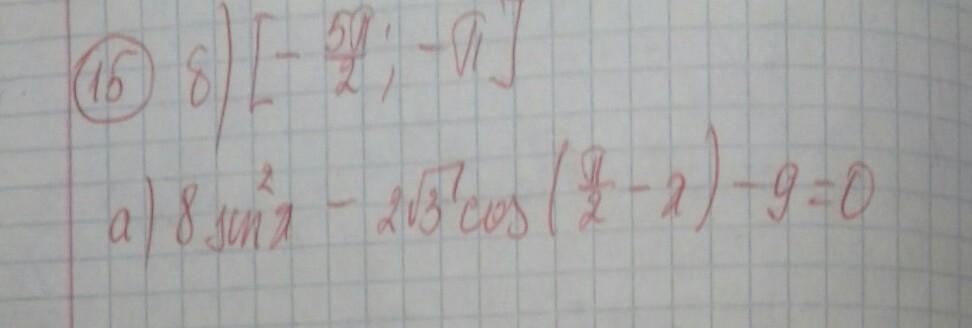 15 б) [-5π/2; -π]
а) 8 sin²x - 2√3 cos(π/2 - x) - 9 = 0